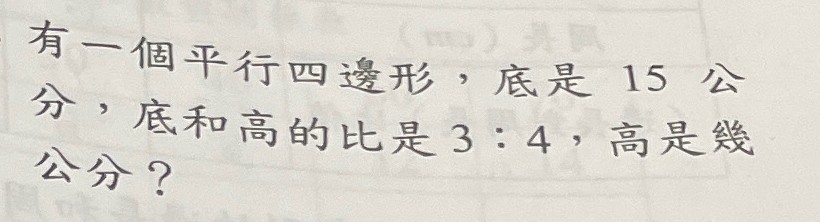 有一個平行四邊形，底是 15 公
分，底和高的比是 3：4，高是幾
公分？